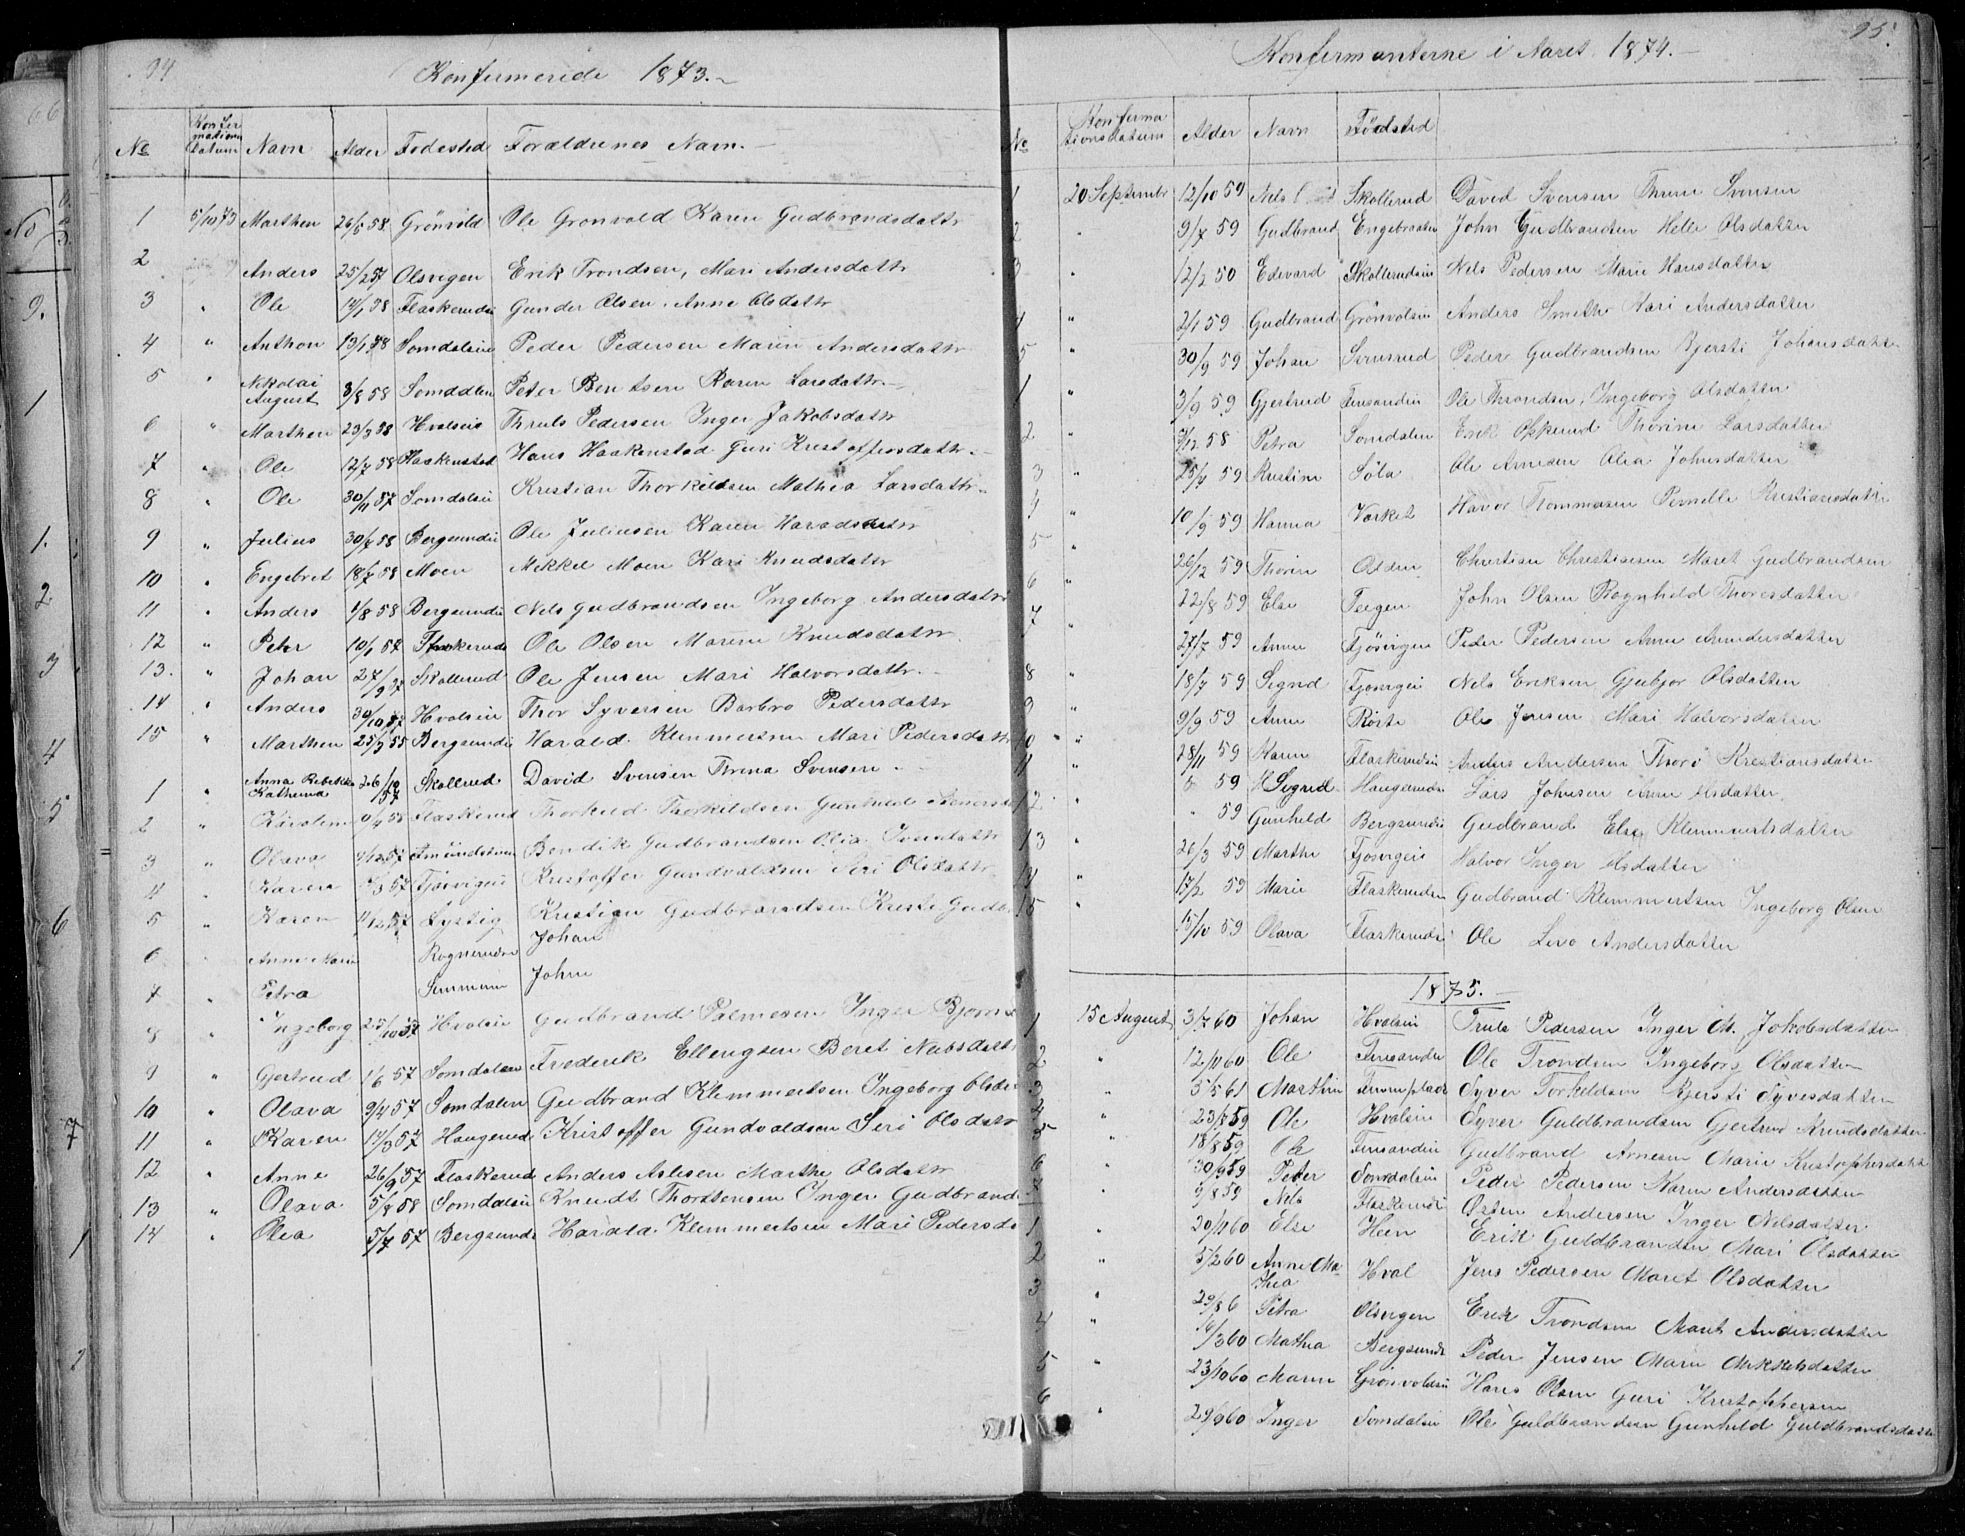 94
Konfirmerede 1873.
No Konfirmations datum Navn Alder Fodested Foraldrenes Navn.
1 5/10 73 Marthen 26/5 58 Grönvold Ole Gronvold Karen Gudbrandsdattr
2 Anders 25/2 57 Olsvigen Erik Trondsen, Mari Andersdattr
3 " Ole 14/1 58 Flaskerudei Gunder Olsen. Anne Olsdattr
4 " Anthon 13/1 58 Somdalseie Peder Pedersen Maren Andersdattr
5 " Nikolai August 3/8 58 Somdalen Peter Bentsen Karen Larsdattr.
6 " Marthen 23/3 58 Hvalseie Thruls Pedersen Inger Jakobsdattr
7 " Ole 12/7 58 Haakenstad Hans Haakenstad Guri Krestoffersdattr.
8 " Ole 30/11 57 Somdalseie Krestian Thorkildsen Mathea Larsdattr.
9 " Julius 30/7 58 Bergsundei Ole Juliusen Karen Haradsdattr
10 " Engebret 18/7 58 Moen Mikkel Moen Kari Knudsdattr
11 " Anders 1/8 58 Bergsundei Nils Gudbrandsen Ingeborg Andersdattr
12 " Peter 10/1 58 Flaskerude Ole Olsen Maren Knudsdattr.
13. " Johan 27/9 57 Skollerud Ole Jensen Mari Halvorsdattr.
14 " Anders 30/10 57 Hvalseie Thor Syversen Barbro Pedersdattr
15 " Marthen 25/9 55 Bergsundei Harald Klemmetsen Mari Pedersdattr
1 " Anna Rebekka Kathrina 26/10 57 Skollerud David Svensen Thrina Svensen
2 " Karolen 58 Flaskerud Thorkild Thorkildsen Gunhild
3 " Olava 57 Amundstuen Bendik Gudbrandsen Olia Iversdattr
4 " Karen 57 Fjösvigei Kristoffer Gundvaldsen Siri Olsdattr
5 " Karen 11/12 57 Lystig Kristian Gudbrandsen Kristi Gudbr
6 " Anne Marie Rognerudei Johan
7 " Petra Simmein John
8 " Ingeborg 25/10 57 Hvalsei Gudbrand Palmesen Inger Bjorns
9 " Gjertrud 1/6 57 Somdalen Frederik Ellengsen Beret Neebsdattr
10 " Olava 9/4 57 Somdalen Gudbrand Klemmetsen Ingeborg Olsda
11 " Karen 14/3 57 Haugerud Kristoffer Gundvaldsen Siri Olsdattr
12 " Anne 26/9 57 Flaskerud Anders Aslesen Marthe Olsdattr
13 " Olava 5/8 58 Somdalsei Knudt Thorstensen Inger Gudbrand
14 " Olea 5/7 57 Bergsunde Harald Klemmetsen Mari Pedersda
95.
Konfirmanterne i Aaret 1874.
No Konfirmationsdatum Alder Navn Födsted
1 20 Septembr 12/10 59 Nils Skollerud David Svensen Thrine Svensen
2 " 9/7 59 Gudbrand Engebraaten John Gudbrandsen Helle Olsdatter
3 " 12/2 50 Edevard Skollerudsei Nils Pedersen Marie Hansdatter
4 " 2/1 59 Gudbrand Grönvolsei Anders Smith Kari Andersdatter
5 " 30/9 59 Johan Svensrud Peder Gudbrandsen Kjersti Johansdatter
1 " 3/9 59 Gjertrud Finsandei Ole Throndsen, Ingeborg Olsdatter
2 " 7/12 58 Petra Somdalen Erik Opkerud Thorine Larsdatter
3 " 25/4 59 Kristine Söla Ole Arnesen Olea Johnsdatter
4 " 10/9 59 Hanna Værket Havor Thommasen Pernelle Kristiansdatter
5 " 26/12 59 Thorin Olden Christian Christiesen Maret Gudbrandsen
6 " 22/8 59 Else Teigen John Olsen Ragnhild Thoresdatter
7 " 27/7 59 Anne Fjösvigen Peder Pedersen Anne Amundersdatter
8 " 18/7 59 Sigrid Fjosvigei Nils Eriksen Gjubjor Olsdatter
9 " 9/9 59 Anne Rörte Ole Jensen Mari Halvorsdatter
10 " 28/11 59 Karen Flaskerudsei Anders Andersen Thorö Krestiansdatter
11 " 59 Sigrid Haugerudsei Lars Johnsen Anne Olsdatter.
12 " 59 Gunhild Bergsundei Gudbrand Else Klemmetsdatter
13 " 26/3 59 Marthe Fjosvigei Halvor Inger Olsdatter
14 " 17/2 59 Marie Flaskerudsei Gudbrand Klemmetsen Ingeborg Olsen
15 " 15/10 59 Olava Flaskerudsei Ole Livo Andersdatter
1875.
1 15 August 3/7 60 Johan Hvalsei Truls Pedersen Inger M. Jokobsdatter
2 " 12/11 60 Ole Finsandei Ole Trondsen Ingeborg Olsdatter
3 " 5/5 61 Marthin Syver Torkildsen Kjersti Syvesdatter
4 " 23/7 59 Ole Hvalsei Syver Guldbrandsen Gjertrud Knudsdatter
5 " 18/8 59 Ole Finsandei Gudbrand Arnesen Marie Kristophersdatter
6 " 30/9 59 Peter Somdalsei Peder Pedersen Karen Andersdatter
7 9/8 59 Nils Flaskerudei Østen Andersen Inger Nilsdatter
1 20/11 60 Else Heen Erik Guldbrandsen Mari Olsdatter
2 " 5/2 60 Anne Mathea Hval Jens Pedersen Maret Olsdatter
3 " 29/8 6 Petra Olsvigen Erik Trondsen Marit Andersdatter
4 " 16/3 60 Mathea Bergsunde Peder Jensen Marie Mikkelsdatter
5 " 23/10 60 Maren Grönvoldsei Hans Olsen Guri Kristophersen
6 " 29/9 60 Inger Somdalsei Ole Guldbrandsen Gunhild Guldbrandsdatter
66
No
9.
1
1.
2
3
4
5
6
7
1